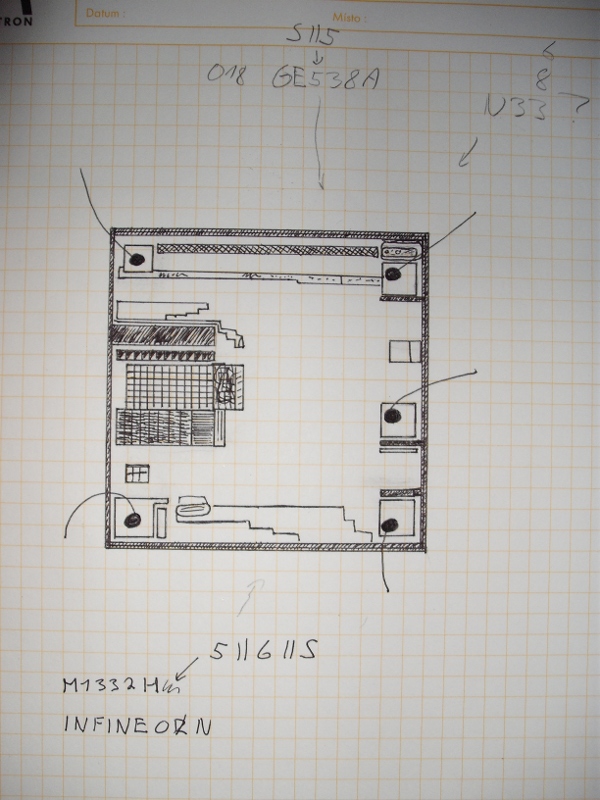 TRON Datum : Místo :
S115
018 GE538A
6
8
N33 ?
5 11 G 11 S
M1332H
INFINEON